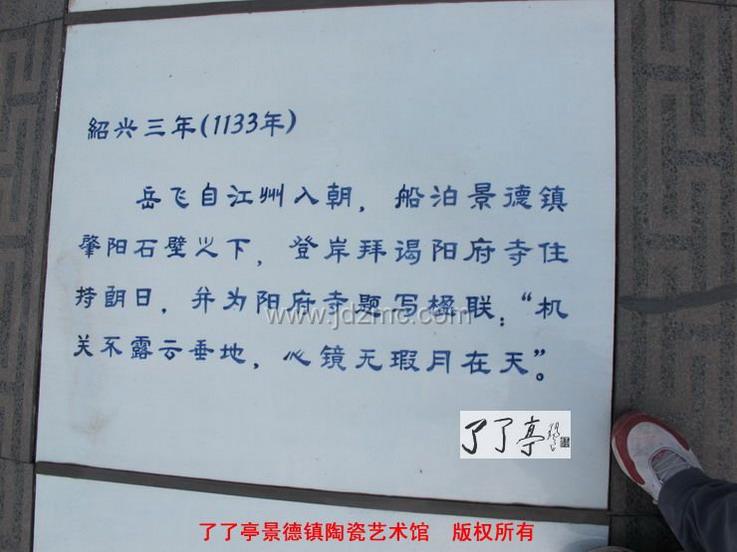 紹兴三年(1133年)
岳飞自江州入朝，船泊景德镇
肇阳石壁之下，登岸拜谒阳府寺住
持朗日，并为阳府寺题写楹联：“机
关不露云垂地，心镜无瑕月在天”。
www.jdzmc.com
了了亭
了了亭景德镇陶瓷艺术馆 版权所有